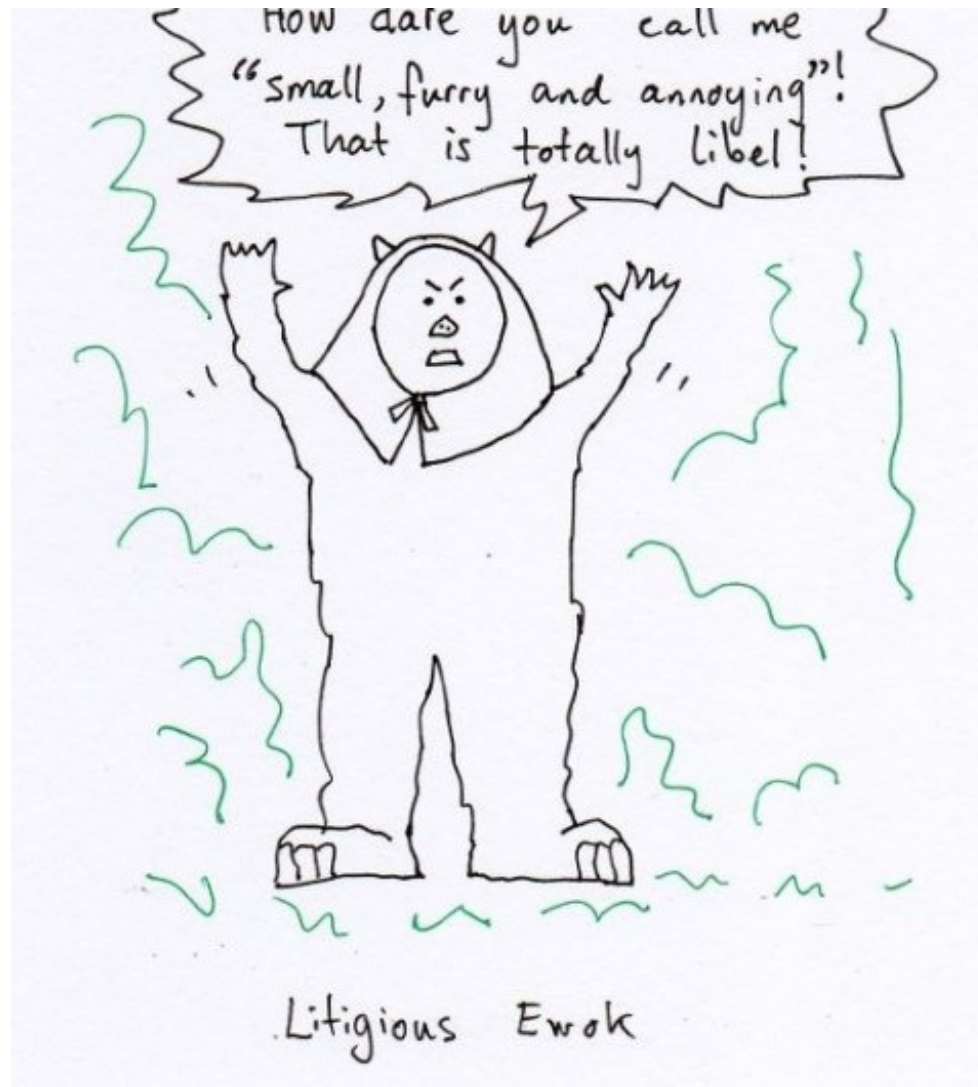 How dare you call me
"small, furry and annoying"!
That is totally libel!
Litigious Ewok